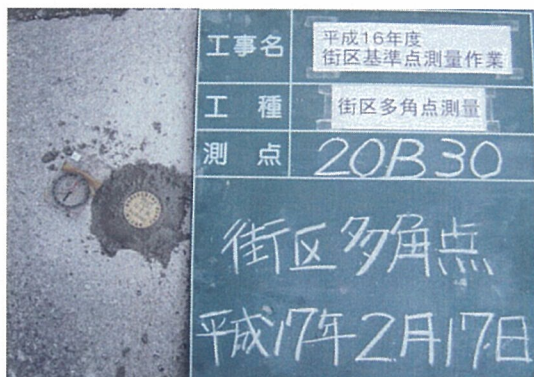 工事名
平成16年度
街区基準点測量作業
工種
街区多角点測量
測点
20B30
街区多角点
平成17年2月17日